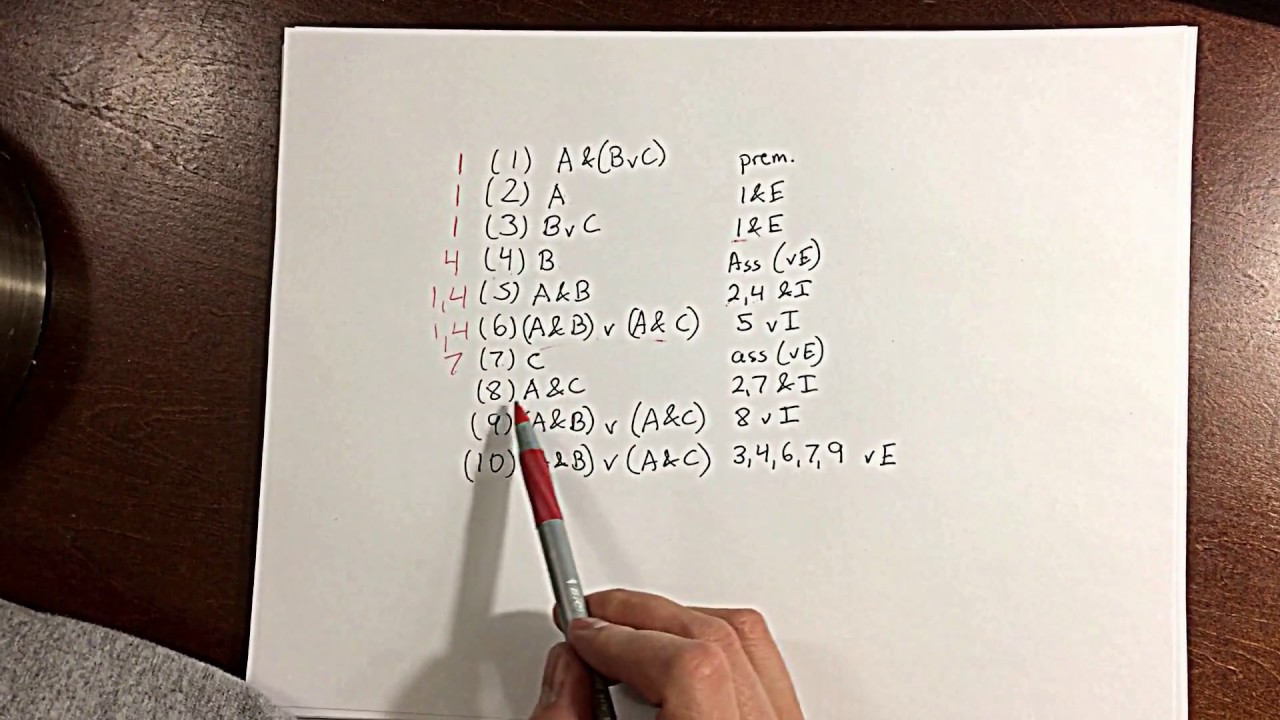 1 (1) A&(BvC) prem.
1 (2) A 1&E
1 (3) BvC 1&E
4 (4) B Ass (vE)
1,4 (5) A&B 2,4 &I
1,4 (6) (A&B) v (A&C) 5 vI
7 (7) C ass (vE)
(8) A&C 2,7 &I
(9) (A&B) v (A&C) 8 vI
(10) &B) v (A&C) 3,4,6,7,9 vE